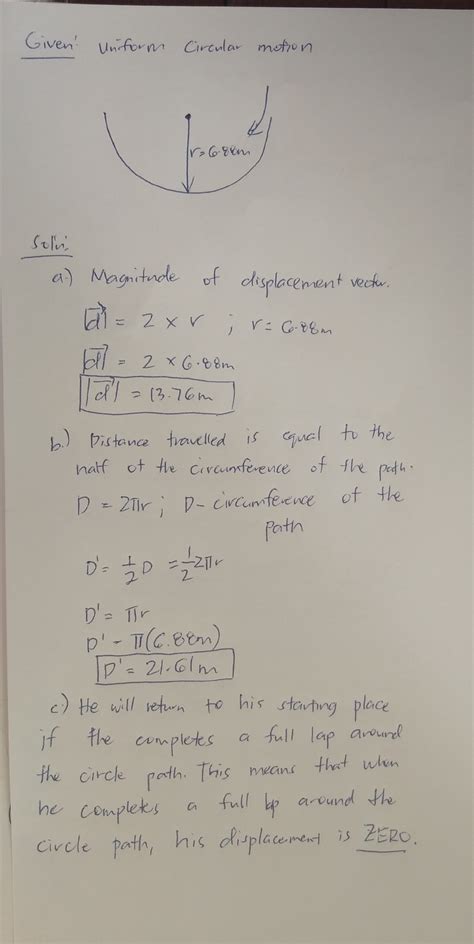 Given: Uniform Circular motion
r=6.88m
Soln:
a.) Magnitude of displacement vector.
|d⃗| = 2 x r ; r = 6.88m
|d⃗| = 2 x 6.88m
|d⃗| = 13.76m
b.) Distance travelled is equal to the
half of the circumference of the path.
D = 2πr ; D - circumference of the
path
D' = 1/2 D = 1/2 2πr
D' = πr
D' - π(6.88m)
D' = 21.61m
c) He will return to his starting place
if the completes a full lap around
the circle path. This means that when
he completes a full lap around the
circle path, his displacement is ZERO.